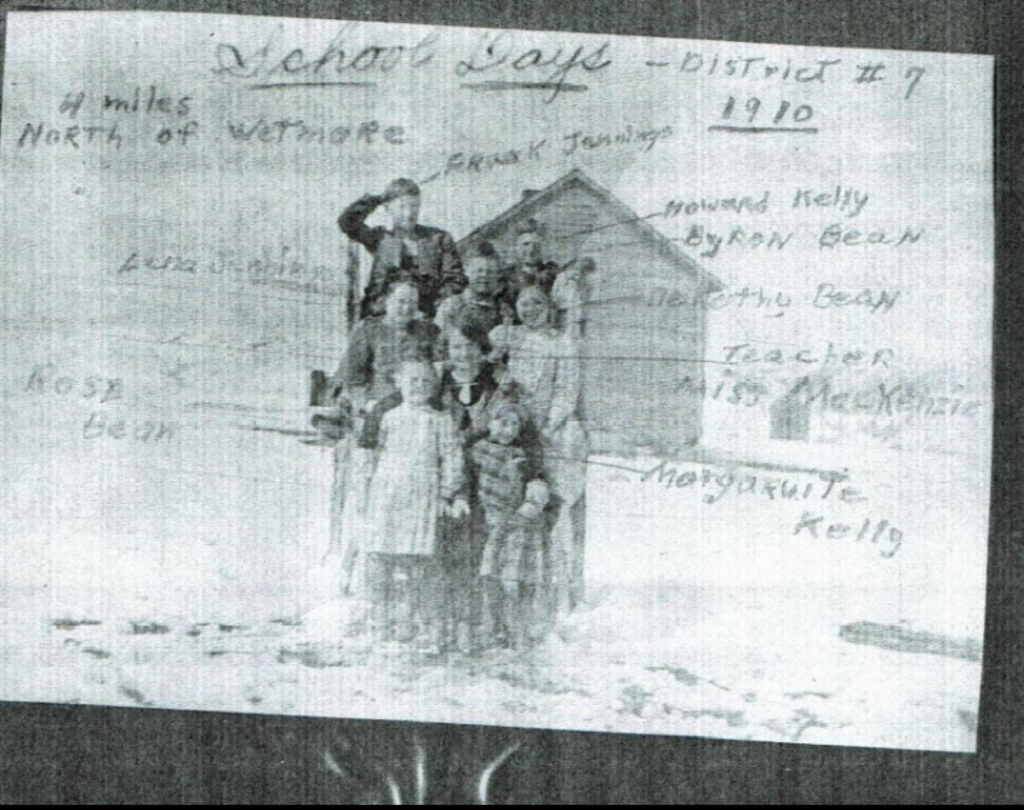 School Days - District # 7
1910
4 miles
North of Wetmore
Frank Jennings
Howard Kelly
Byron Bean
Lena Jennings
Dorothy Bean
Teacher
Miss MacKenzie
Rose
Bean
Margaruite
Kelly